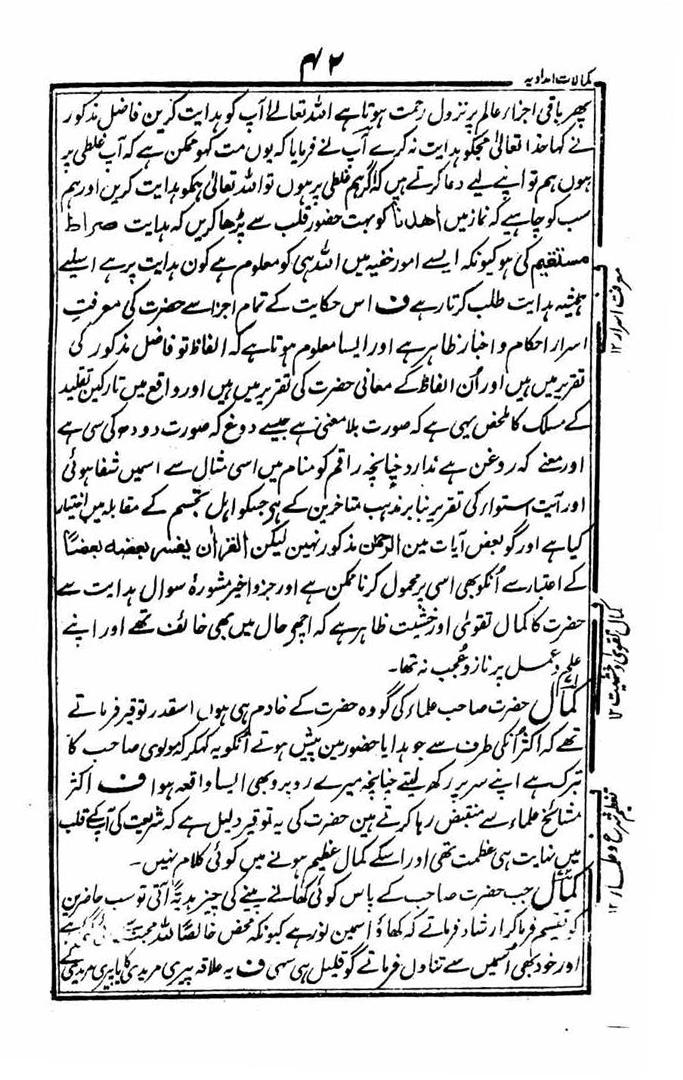 ۴۲
کمالات امدادیہ
پھر باقی اجزاء عالم پر نزول رحمت ہوتا ہے اللہ تعالےٰ آپ کو ہدایت کریں فاضل مذکور
نے کہا خدا تعالیٰ مجکو ہدایت نہ کرے آپ نے فرمایا کہ یوں مت کہو ممکن ہے کہ آپ غلطی پر
ہوں ہم تو اپنے لیے دعا کرتے ہیں کہ اگر ہم غلطی پر ہوں تو اللہ تعالیٰ ہمکو ہدایت کریں اور ہم
سب کو چاہیے کہ نماز میں اھدنا کو بہت حضور قلب سے پڑھا کریں کہ ہدایت صراط
مستقیم کی ہو کیونکہ ایسے امور خفیہ میں اللہ ہی کو معلوم ہے کون ہدایت پر ہے اسلیے
ہمیشہ ہدایت طلب کرتا رہے ف اس حکایت کے تمام اجزا سے حضرت کی معرفتِ
اسرار احکام و اخبار ظاہر ہے اور ایسا معلوم ہوتا ہے کہ الفاظ تو فاضل مذکور کی
تقریر میں ہیں اور اُن الفاظ کے معانی حضرت کی تقریر میں ہیں اور واقع میں تارکین تقلید
کے مسلک کا ملخص یہی ہے کہ صورت بلا معنی ہے جیسے دوغ کہ صورت دودھ کی سی ہے
اور معنے کہ روغن ہے ندارد چنانچہ راقم کو منام میں اسی مثال سے اسمیں شفا ہوئی
اور آیت استواء کی تقریر بنا بر مذہب متاخرین کے ہی جسکو اہل تجسم کے مقابلہ میں اختیار
کیا ہے اور گو بعض آیات مین الرحمٰن مذکور نہین لیکن القراٰن یفسر بعضہ بعضًا
کے اعتبار سے اُنکو بھی اسی پر محمول کرنا ممکن ہے اور جزو اخیر مشورۂ سوال ہدایت سے
حضرت کا کمال تقویٰ اور خشیت ظاہر ہے کہ اچھے حال میں بھی خائف تھے اور اپنے
علم و عمل پر ناز و عُجب نہ تھا۔
کمال حضرت صاحب علماء کی گو وہ حضرت کے خادم ہی ہوں اسقدر توقیر فرماتے
تھے کہ اکثر اُنکی طرف سے جو ہدایا حضور مین پیش ہوتے اُنکو یہ کہکر کہ مولوی صاحب کا
تبرک ہے اپنے سر پر رکھ لیتے چنانچہ میرے روبرو بھی ایسا واقعہ ہوا ف اکثر
مشائخ علماء سے منقبض رہا کرتے ہین حضرت کی یہ توقیر دلیل ہے کہ شریعت کی آپکے قلب
میں نہایت ہی عظمت تھی اور اسکے کمال عظیم ہونے میں کوئی کلام نہیں۔
کمال جب حضرت صاحب کے پاس کوئی کھانے پینے کی چیز ہدیۃً آتی تو سب حاضرین
کو تقسیم فرما کر ارشاد فرماتے کہ کھاؤ اسمین نور ہے کیونکہ محض خالصًا للہ
اور خود بھی اُسمیں سے تناول فرماتے گو قلیل ہی سہی ف یہ علاقہ پیری مریدی کا یا پیری مریدی کے
معرفت اسرار ۱۲
کمال تقویٰ و خشیت ۱۲
تعظیم شرع و علماء ۱۲